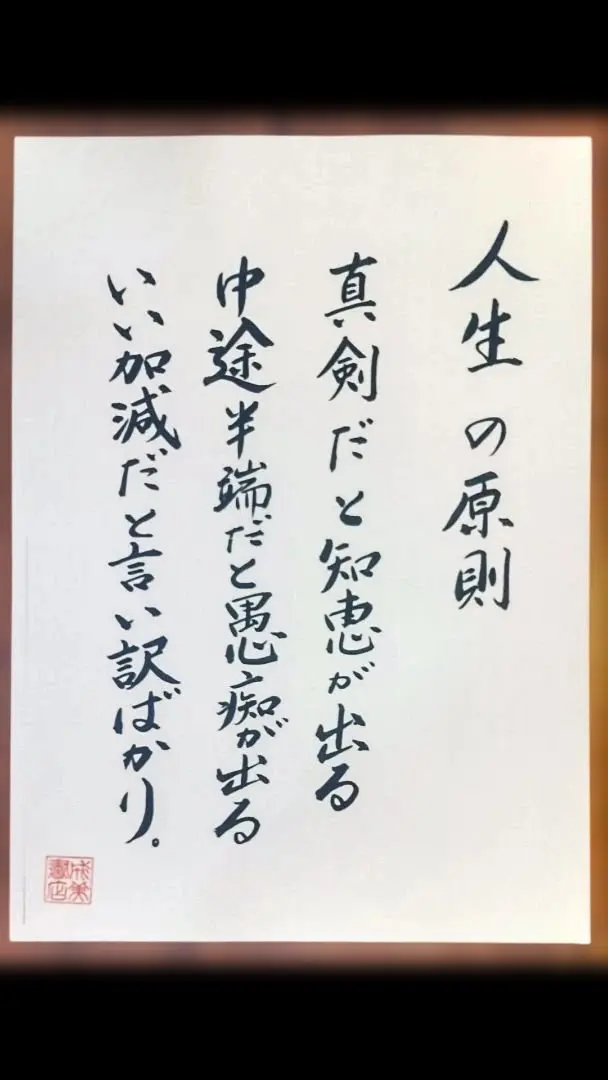 人生の原則
真剣だと知恵が出る
中途半端だと愚痴が出る
いい加減だと言い訳ばかり。